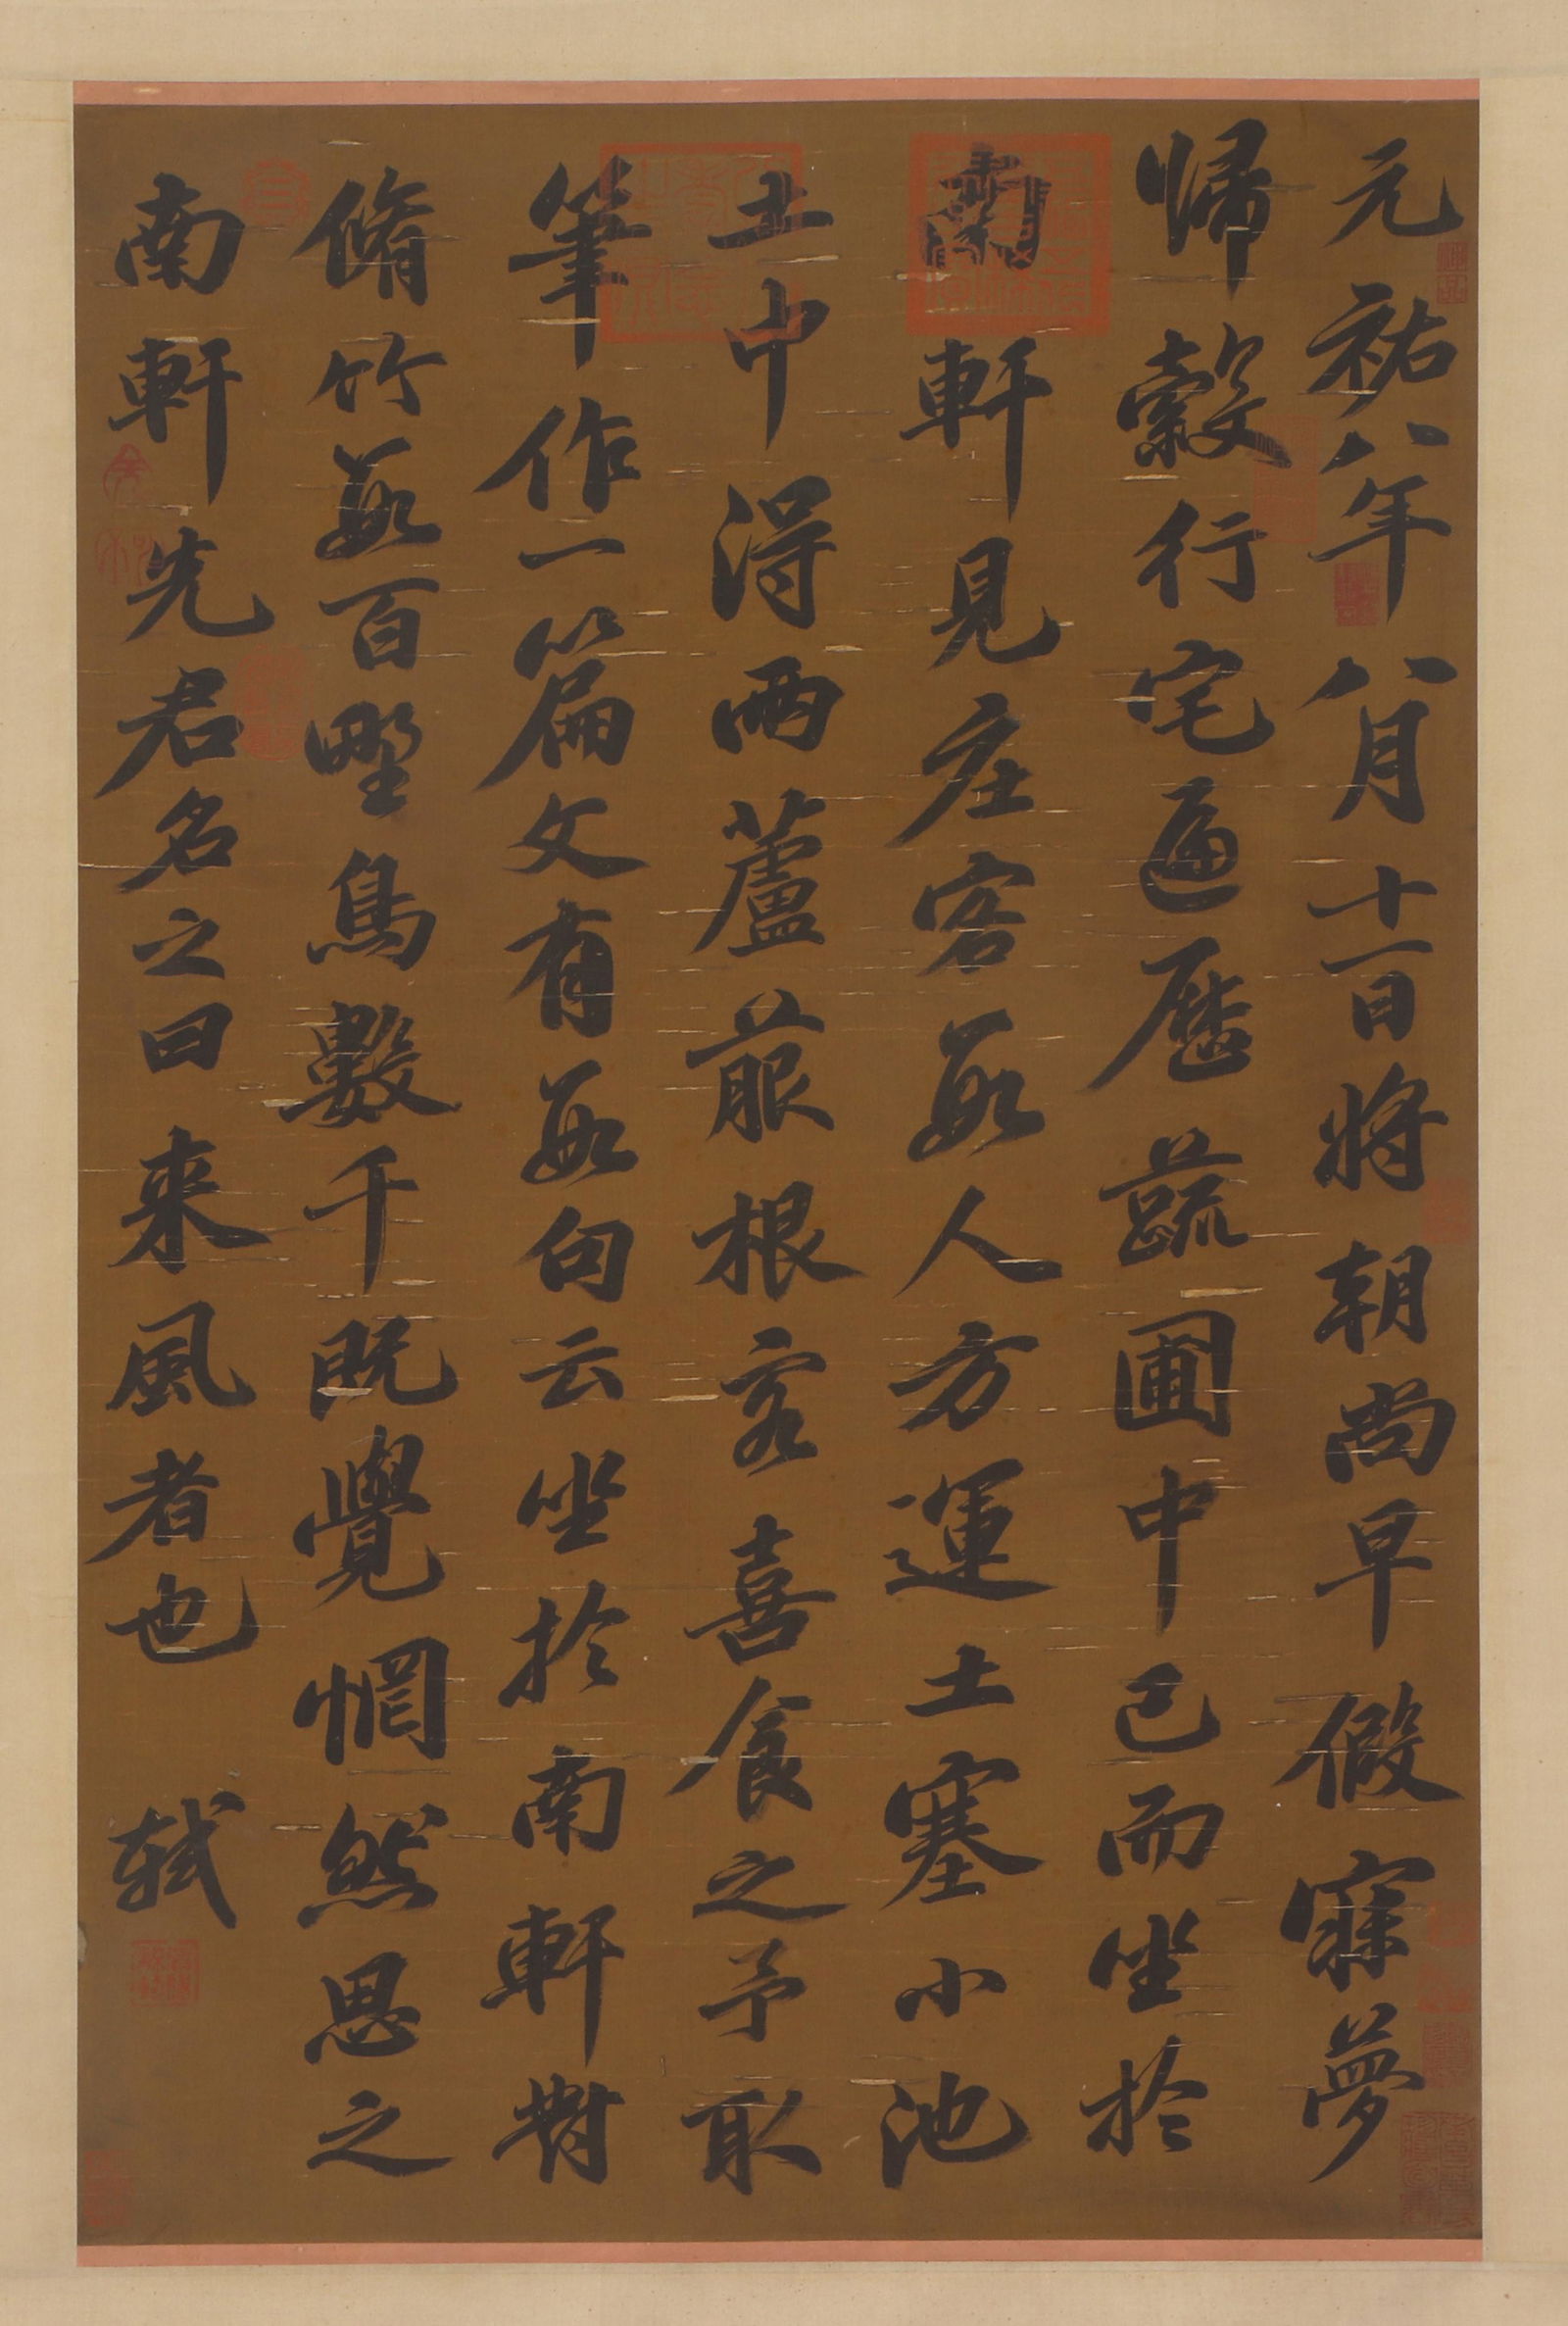 元祐八年八月十一日將朝尚早假寐夢
歸縠行宅遍歷蔬圃中已而坐於
南軒見庄客數人方運土塞小池
土中得兩蘆菔根客喜食之予取
筆作一篇文有數句云坐於南軒對
脩竹數百野鳥數千既覺惘然思之
南軒先君名之曰来風者也 軾